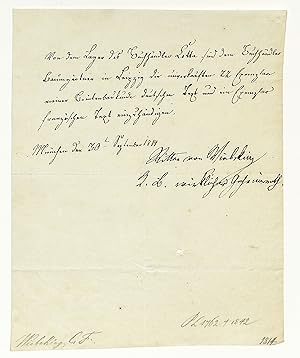 Von dem Lager des Buchhändler Cotta sind dem Buchhändler
Baumgärtner in Leipzig die 22 Exemplare
meiner deutschen Text und ein Exemplar
französischen Text einzuhändigen.
München den 30t September 1811
Ritter von Wiebeking
K. B. wirklicher Geheimerath.
1762 † 1842
Wiebeking, C. F.
1811